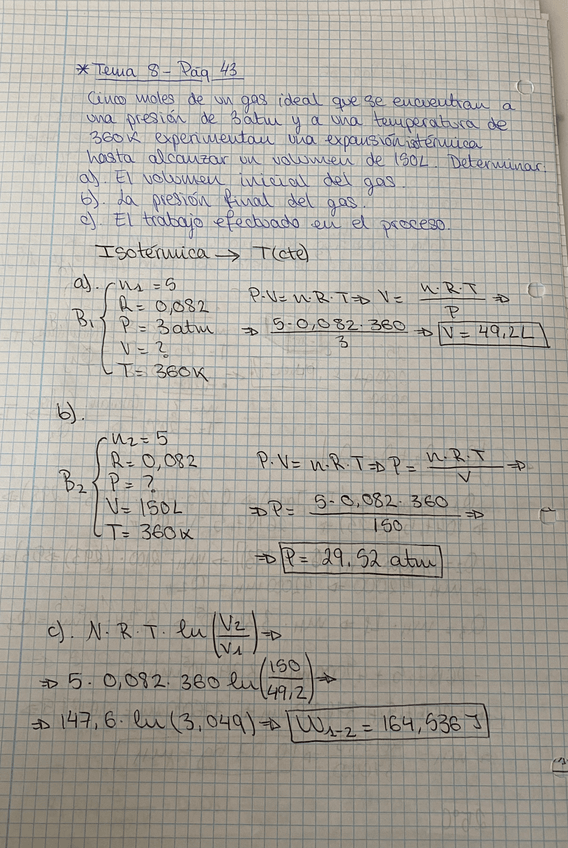 * Tema 8 - Pág 43
Cinco moles de un gas ideal que se encuentran a
una presión de 3atm y a una temperatura de
360K experimentan una expansión istérmica
hasta alcanzar un volumen de 150L. Determinar:
a). El volumen inicial del gas.
b). La presión final del gas.
c). El trabajo efectuado en el proceso.
Isotérmica → T(cte)
a). n1 = 5
R = 0,082
B1 { P = 3atm
V = ?
T = 360K
P·V = n·R·T ⇒ V = n·R·T / P ⇒
⇒ 5·0,082·360 / 3 ⇒ V = 49,2L
b).
n2 = 5
R = 0,082
B2 { P = ?
V = 150L
T = 360K
P·V = n·R·T ⇒ P = n·R·T / V ⇒
⇒ P = 5·0,082·360 / 150 ⇒
⇒ P = 29,52 atm
c). N·R·T·ln(V2/V1) ⇒
⇒ 5·0,082·360 ln(150/49,2) ⇒
⇒ 147,6·ln(3,049) ⇒ W1-2 = 164,536 J